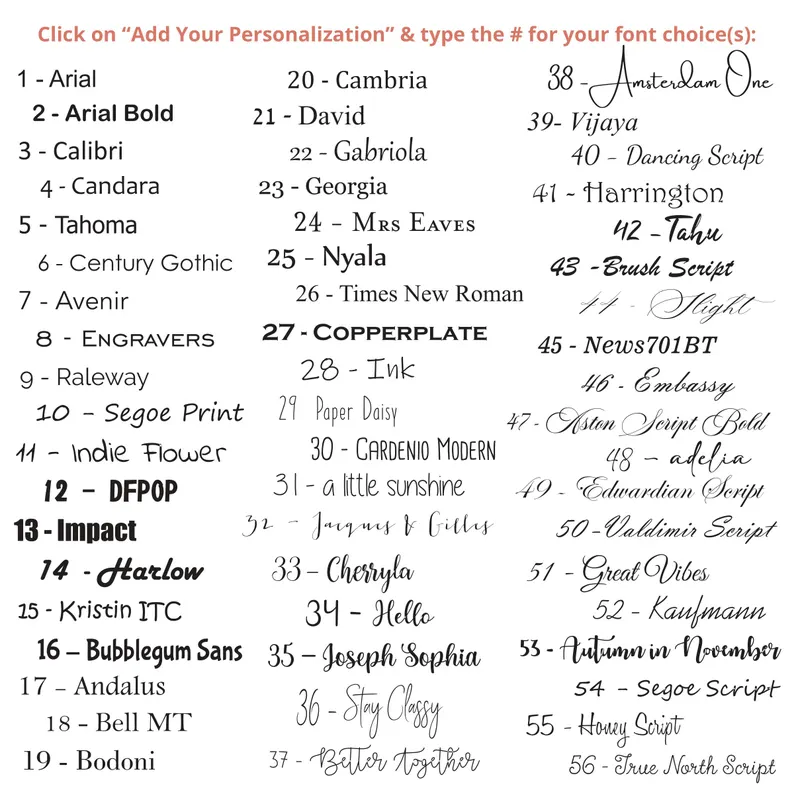 Click on “Add Your Personalization” & type the # for your font choice(s):
1 - Arial
2 - Arial Bold
3 - Calibri
4 - Candara
5 - Tahoma
6 - Century Gothic
7 - Avenir
8 - Engravers
9 - Raleway
10 - Segoe Print
11 - Indie Flower
12 - DFPOP
13 - Impact
14 - Harlow
15 - Kristin ITC
16 – Bubblegum Sans
17 - Andalus
18 - Bell MT
19 - Bodoni
20 - Cambria
21 - David
22 - Gabriola
23 - Georgia
24 - Mrs Eaves
25 - Nyala
26 - Times New Roman
27 - Copperplate
28 - Ink
29 Paper Daisy
30 - Cardenio Modern
31 - a little sunshine
32 - Jacques & Gilles
33 – Cherryla
34 - Hello
35 – Joseph Sophia
36 - Stay Classy
37 - Better together
38 - Amsterdam One
39- Vijaya
40 - Dancing Script
41 - Harrington
42 - Tahu
43 - Brush Script
44 - Flight
45 - News701BT
46 - Embassy
47 - Aston Script Bold
48 - adelia
49 - Edwardian Script
50 - Valdimir Script
51 - Great Vibes
52 - Kaufmann
53 - Autumn in November
54 - Segoe Script
55 - Honey Script
56 - True North Script